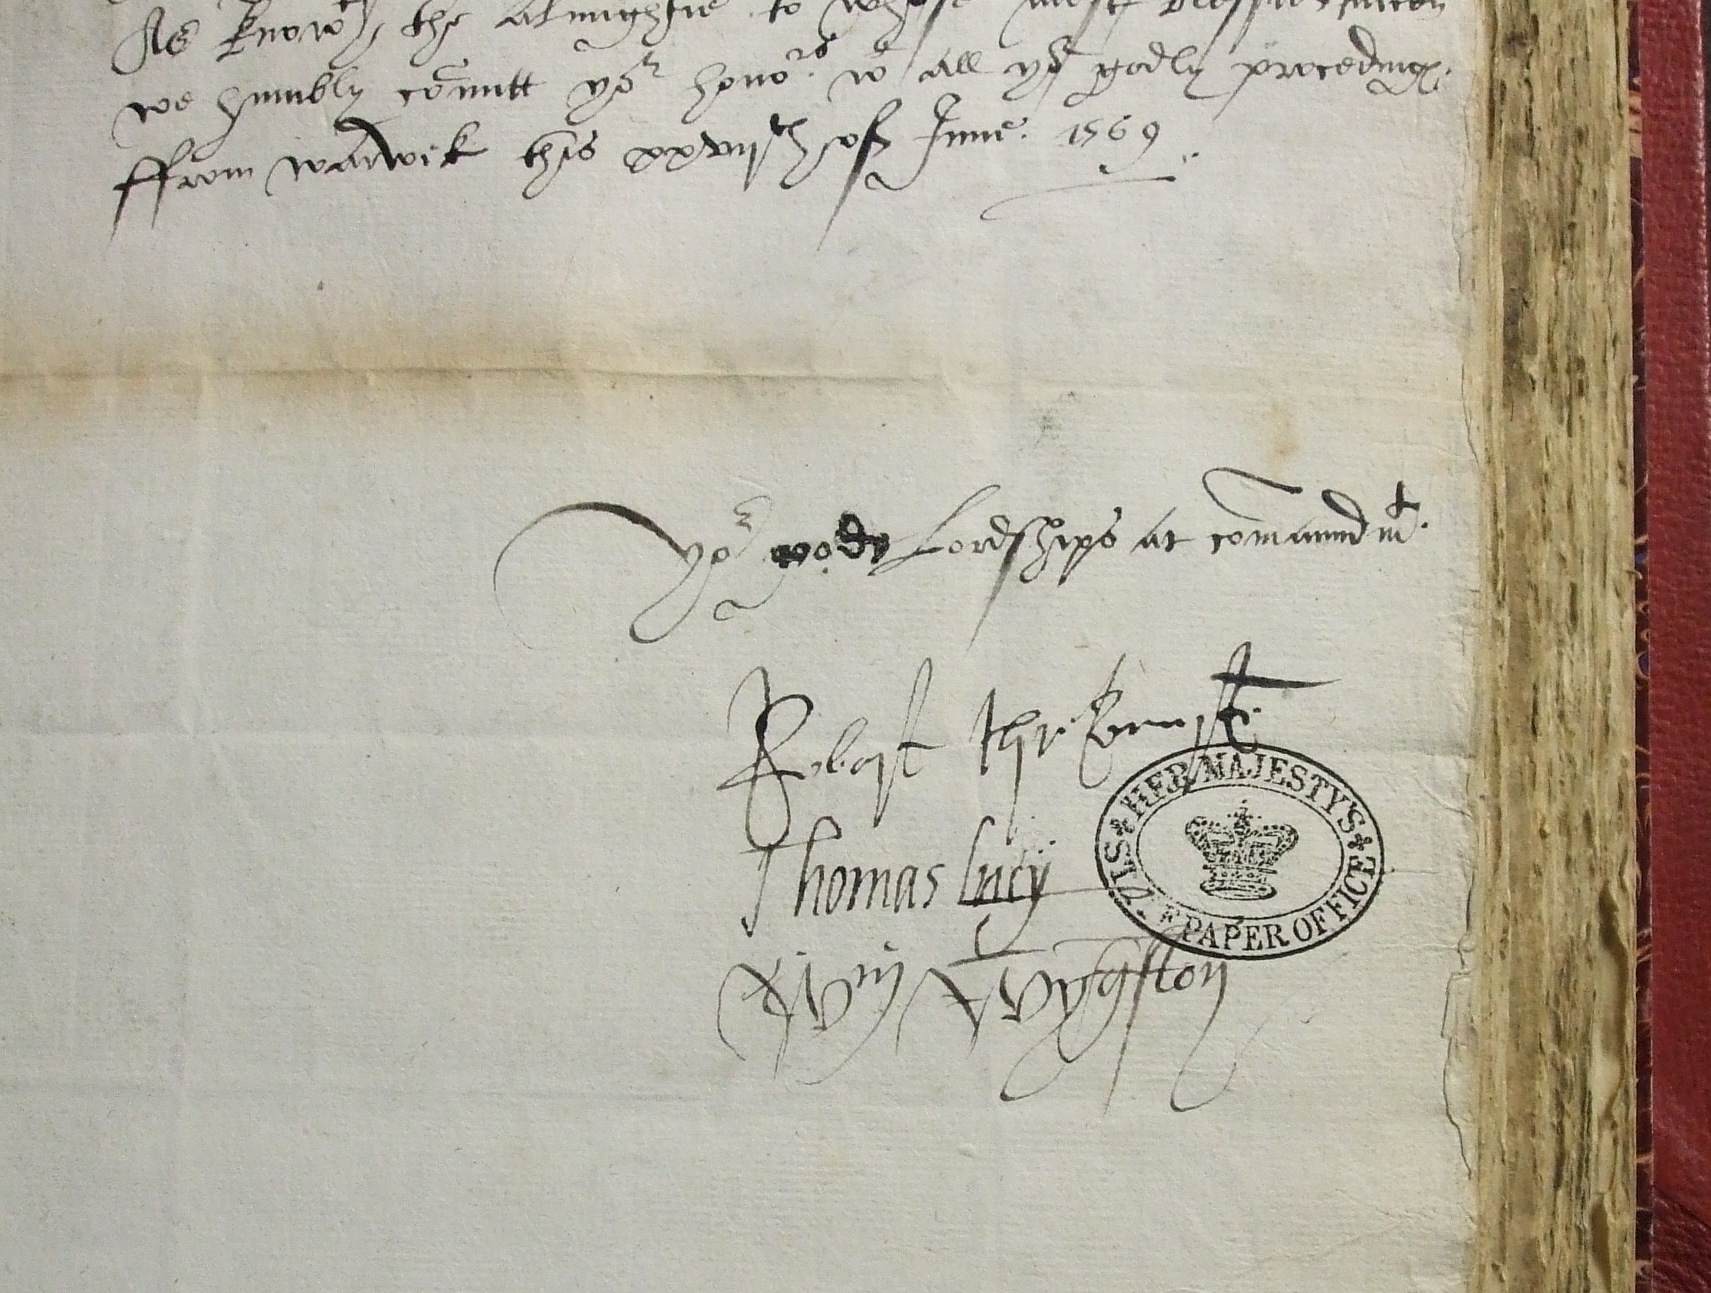 As knowth the Almightie to whose most blessid
we humbly comitt yor honors wt all yor godly proceding
ffrom warwik this xxviijth of June. 1569
yor good Lordships at comaundmt.
Robert throkmrt
Thomas Lucy
HER MAJESTY'S
STATE PAPER OFFICE